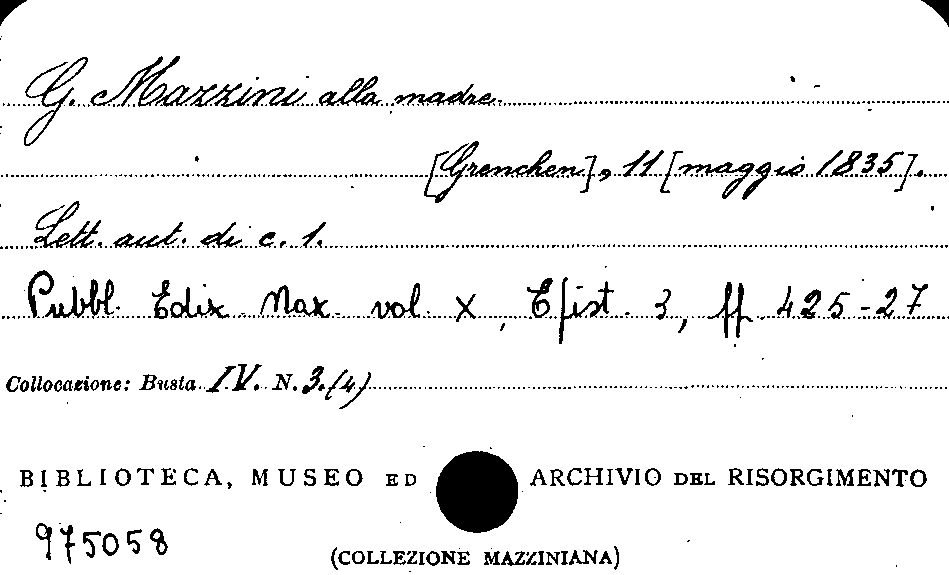 G. Mazzini alla madre.
[Grenchen], 11 [maggio 1835].
Lett. aut. di c. 1.
Pubbl. Ediz. Naz. vol. X, Epist. 3, pp. 425-27
Collocazione: Busta IV. N. 3.(4)
BIBLIOTECA, MUSEO ED ARCHIVIO DEL RISORGIMENTO
975058
(COLLEZIONE MAZZINIANA)